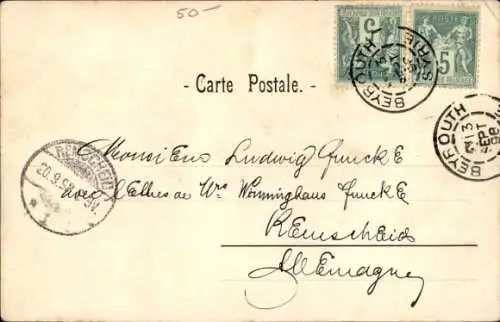 50-
POSTE
5
5
BEYROUTH
SYRIE
- Carte Postale. -
BEYROUTH
13
SEPT
98
REMSCHEID
20.9.98
Monsieur Ludwig Funcke
avec l' de Wve Wönninghaus Funcke
Remscheid
Allemagne